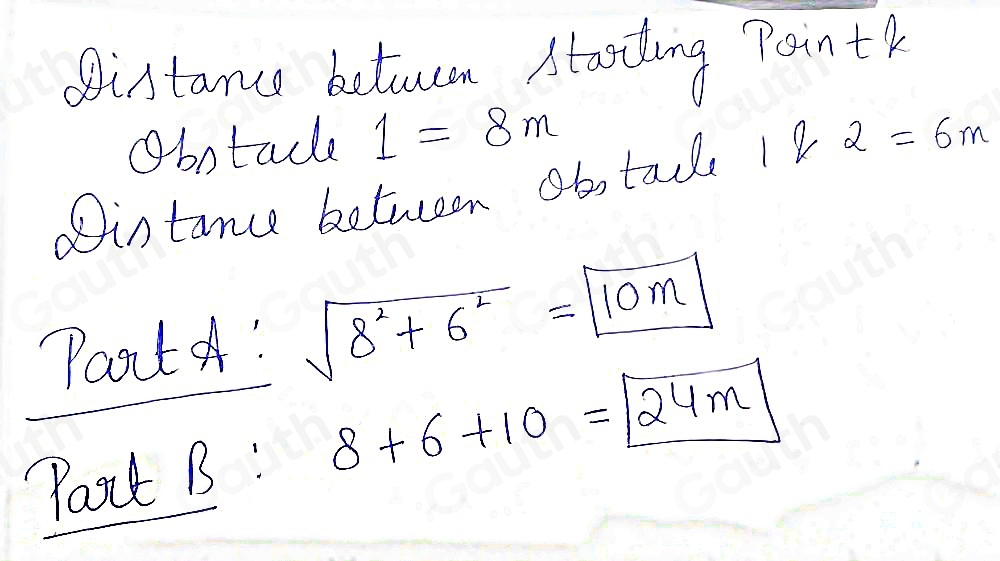 Distance between Starting Point &
Obstacle 1 = 8m
Distance between Obstacle 1 & 2 = 6m
Part A: √(8² + 6²) = 10m
Part B: 8 + 6 + 10 = 24m